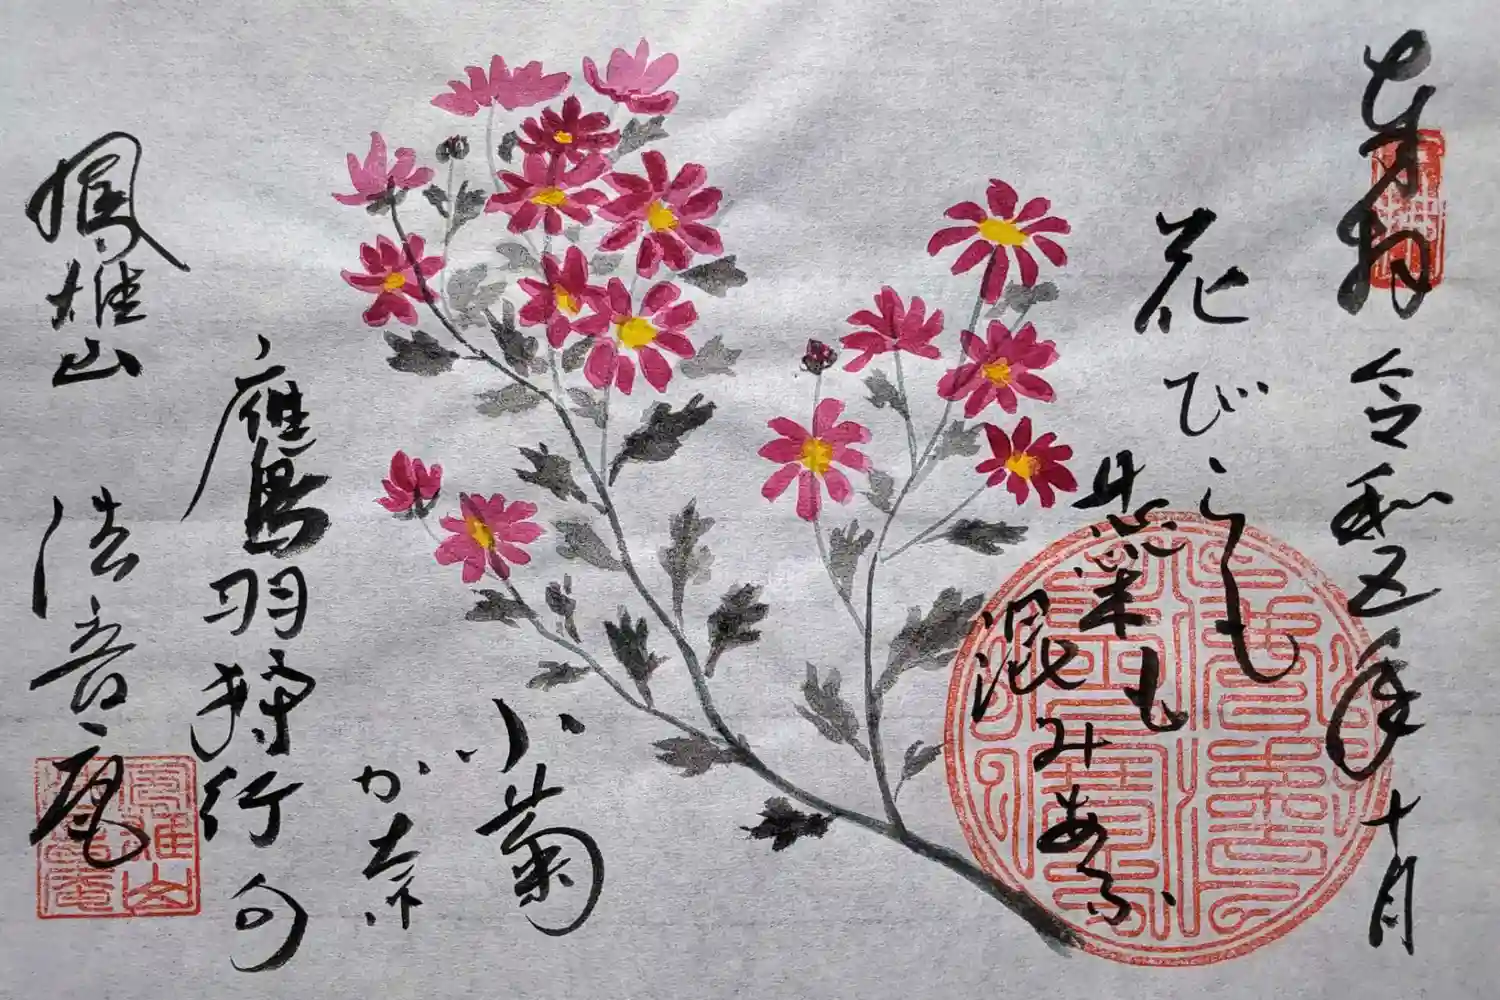 奉拝 令和五年十月
花びらも
蘂も
混みあふ
小菊
か奈
鷹羽狩行 句
鳳雄山 浩音庵